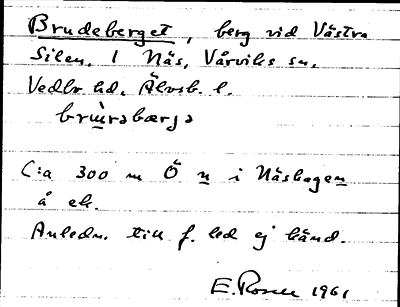 Brudeberget, berg vid Västra
Silen. I Näs, Vårviks sn,
Vedbo hd, Älvsb. l.
C:a 300 m Ö n i Näshagen
å ek.
Anledn. till f. led ej känd.
E. Rosell 1961